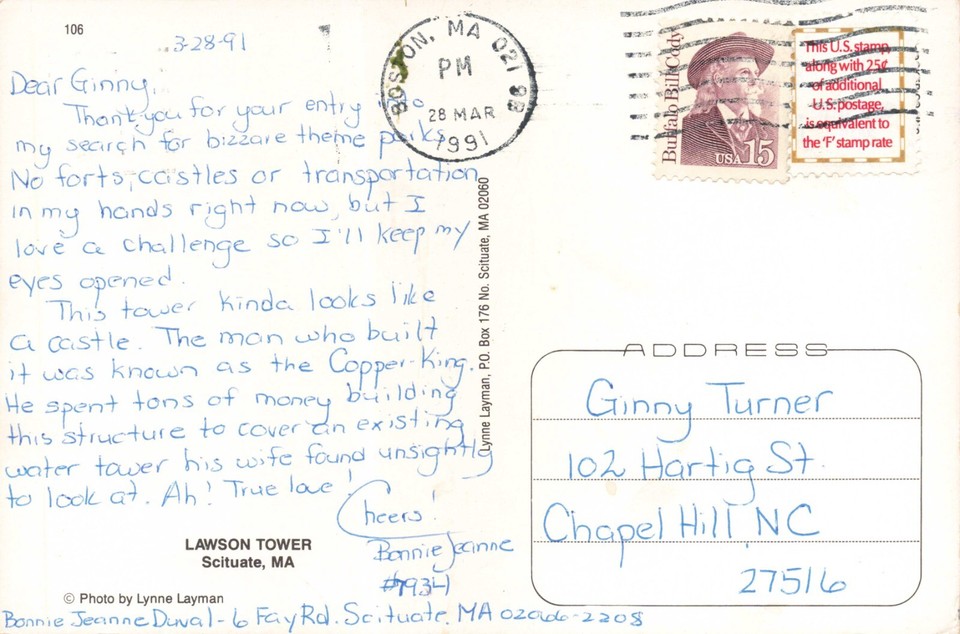 106
3-28-91
Dear Ginny,
Thank you for your entry into
my search for bizzare theme parks.
No forts, castles or transportation
in my hands right now, but I
love a challenge so I'll keep my
eyes opened.
This tower kinda looks like
a castle. The man who built
it was known as the Copper-King.
He spent tons of money building
this structure to cover an existing
water tower his wife found unsightly
to look at. Ah! True love!
Cheers!
Bonnie Jeanne
#7934
LAWSON TOWER
Scituate, MA
© Photo by Lynne Layman
Bonnie Jeanne Duval - 6 Fay Rd. Scituate, MA 02066-2208
Lynne Layman, P.O. Box 176 No. Scituate, MA 02060
BOSTON, MA 021
PM
28 MAR
1991
Buffalo Bill Cody
USA 15
This U.S. stamp,
along with 25¢
of additional
U.S. postage,
is equivalent to
the 'F' stamp rate
ADDRESS
Ginny Turner
102 Hartig St.
Chapel Hill, NC
27516